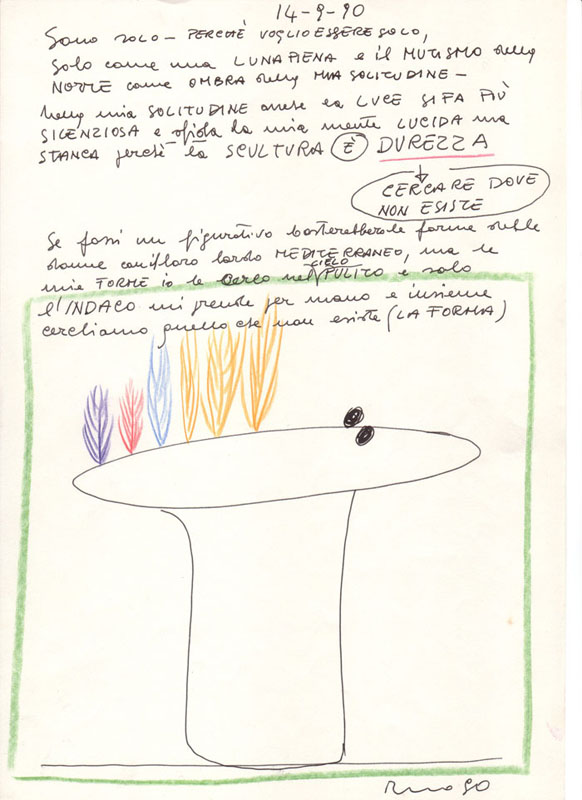 14-9-90
Sono solo - PERCHÈ VOGLIO ESSERE SOLO,
solo come una LUNA PIENA e il MUTISMO della
NOTTE come OMBRA della MIA SOLITUDINE -
nella mia SOLITUDINE anche la LUCE SI FA PIÙ
SILENZIOSA e sfida la mia mente LUCIDA ma
STANCA perchè la SCULTURA È DUREZZA
CERCARE DOVE
NON ESISTE
Se fossi un figurativo basterebbero le forme delle
donne con il loro bordo MEDITERRANEO, ma le
mie FORME io le cerco nel CIELO PULITO e solo
l'INDACO mi prende per mano e insieme
cerchiamo quello che non esiste (LA FORMA)
90